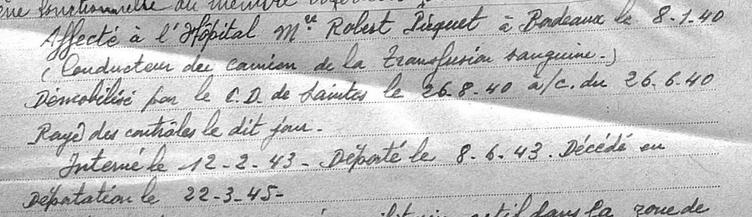 fonctionnelle du membre
Affecté à l'Hôpital Mre Robert Picquet à Bordeaux le 8-1-40
(Conducteur du camion de la transfusion sanguine.)
Démobilisé par le C.D. de Saintes le 26-8-40 a/c. du 26-6-40
Rayé des contrôles le dit jour.
Interné le 12-2-43 - Déporté le 8-6-43. Décédé en
Déportation le 22-3-45-
actif dans la zone de